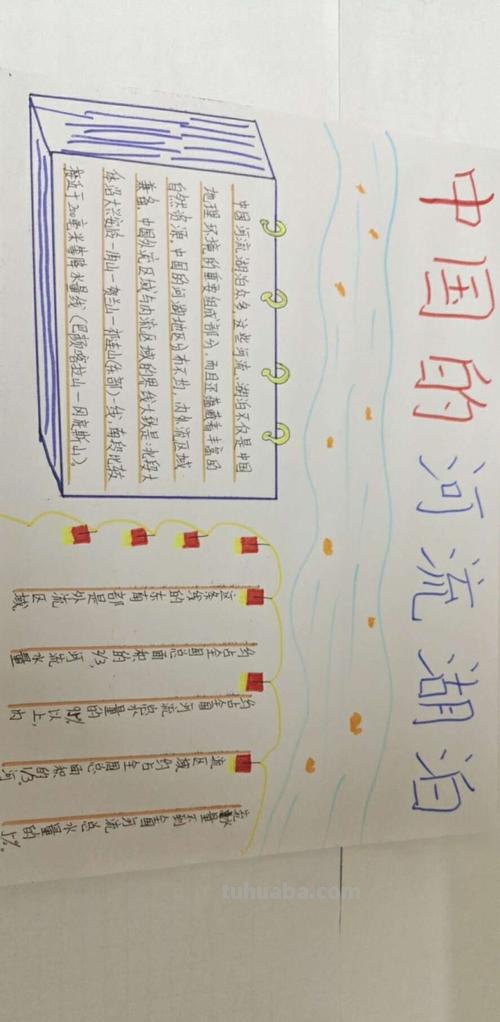 中国的河流湖泊
中国河流湖泊众多,这些河流、湖泊不仅是中国
地理环境的重要组成部分,而且还蕴藏着丰富的
自然资源。中国的河湖地区分布不均,内外流区域
兼备。中国外流区域与内流区域的界线大致是:北段大
体沿大兴安岭—阴山—贺兰山—祁连山(东部)一线,南段比较
接近于200毫米等降水量线(巴颜喀拉山—冈底斯山),
这条线的东南部是外流区域,
约占全国总面积的2/3,河流水量
约占全国河流总水量的95%以上,内
流区域约占全国总面积的1/3,河
流水量不到全国河流总水量的5%。
tuhuaba.com